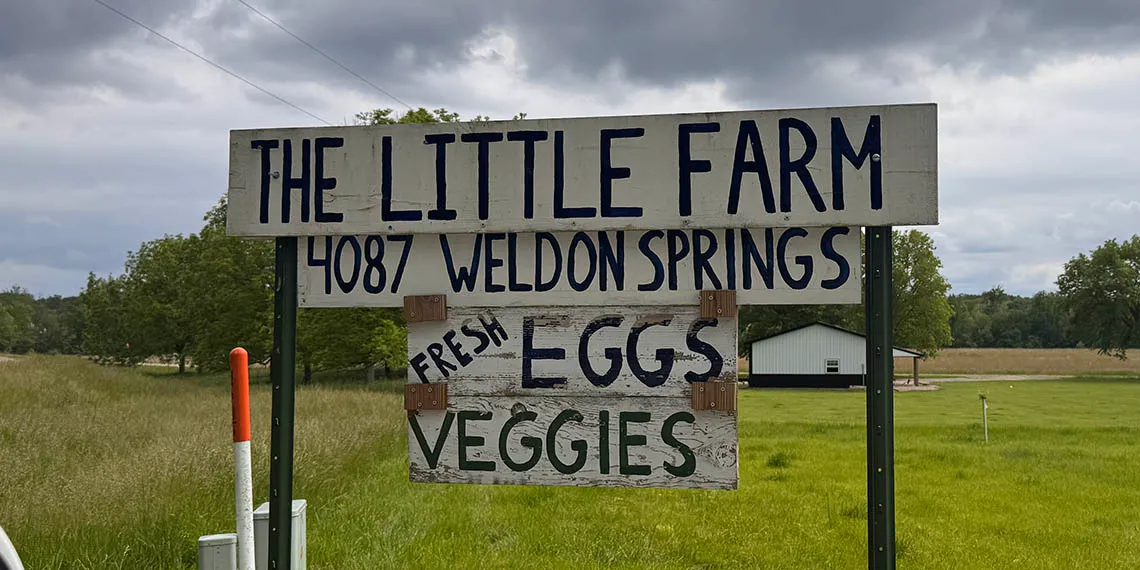 THE LITTLE FARM
4087 WELDON SPRINGS
FRESH EGGS
VEGGIES